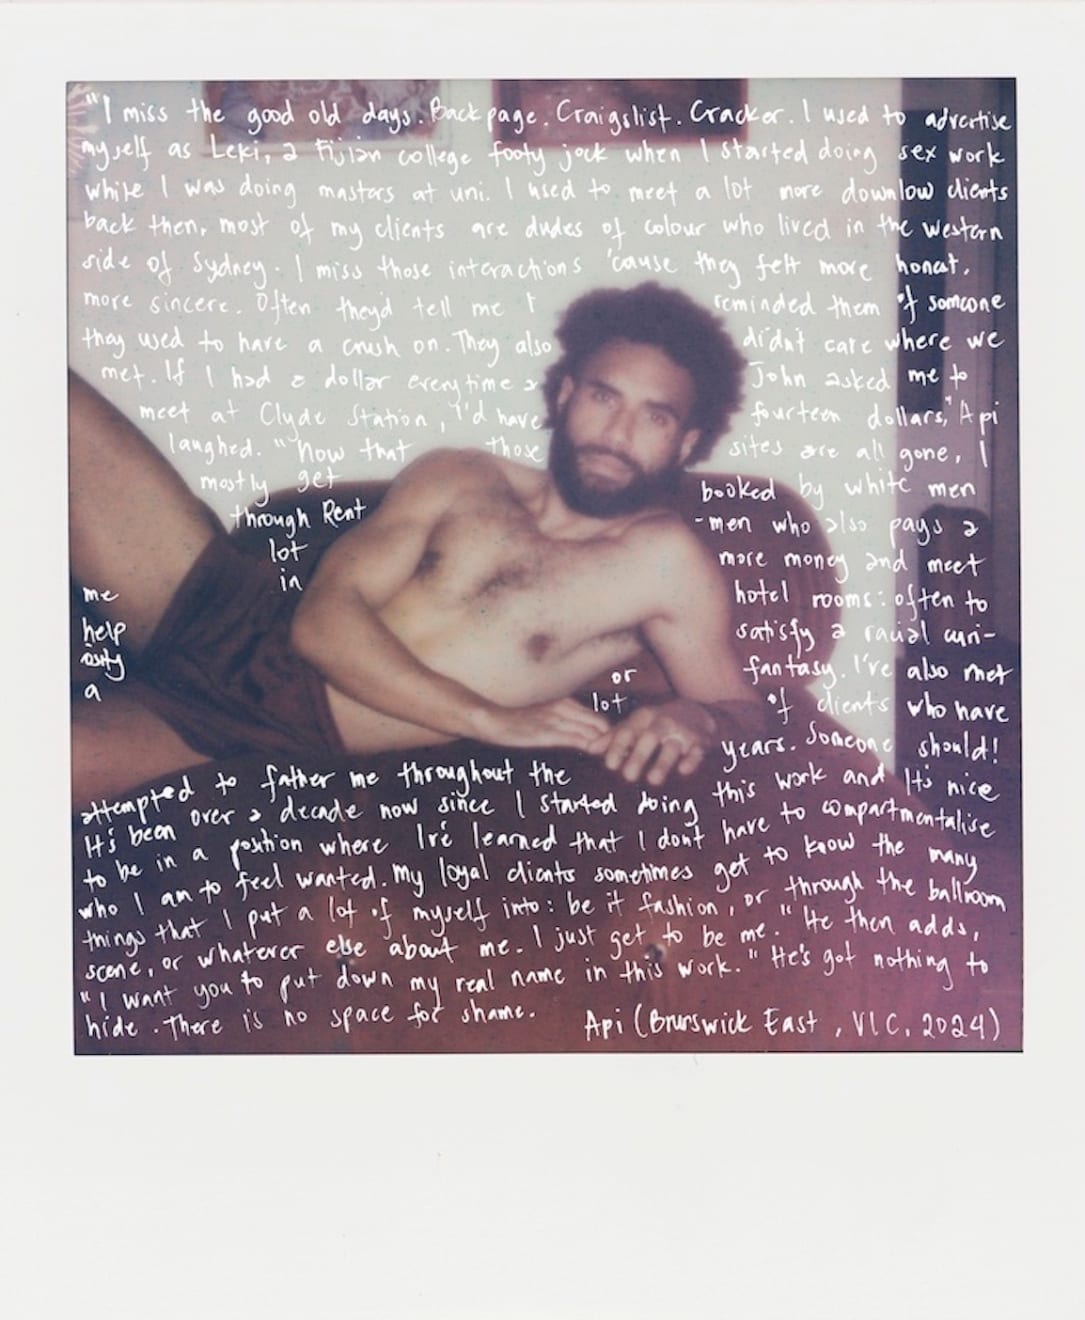 "I miss the good old days. Backpage. Craigslist. Cracker. I used to advertise
myself as Leki, a Fijian college footy jock when I started doing sex work
while I was doing masters at uni. I used to meet a lot more downlow clients
back then, most of my clients are dudes of colour who lived in the western
side of Sydney. I miss those interactions 'cause they felt more honest,
more sincere. Often they'd tell me I reminded them of someone
they used to have a crush on. They also didn't care where we
met. If I had a dollar everytime a John asked me to
meet at Clyde Station, I'd have fourteen dollars," Api
laughed. "Now that those sites are all gone, I
mostly get booked by white men
through Rent -men who also pays a
lot more money and meet
me in hotel rooms: often to
help satisfy a racial curi-
osity or fantasy. I've also met
a lot of clients who have
attempted to father me throughout the years. Someone should!
It's been over a decade now since I started doing this work and It's nice
to be in a position where I've learned that I don't have to compartmentalise
who I am to feel wanted. My loyal clients sometimes get to know the many
things that I put a lot of myself into: be it fashion, or through the ballroom
scene, or whatever else about me. I just get to be me." He then adds,
"I want you to put down my real name in this work." He's got nothing to
hide. There is no space for shame. Api (Brunswick East, VIC, 2024)